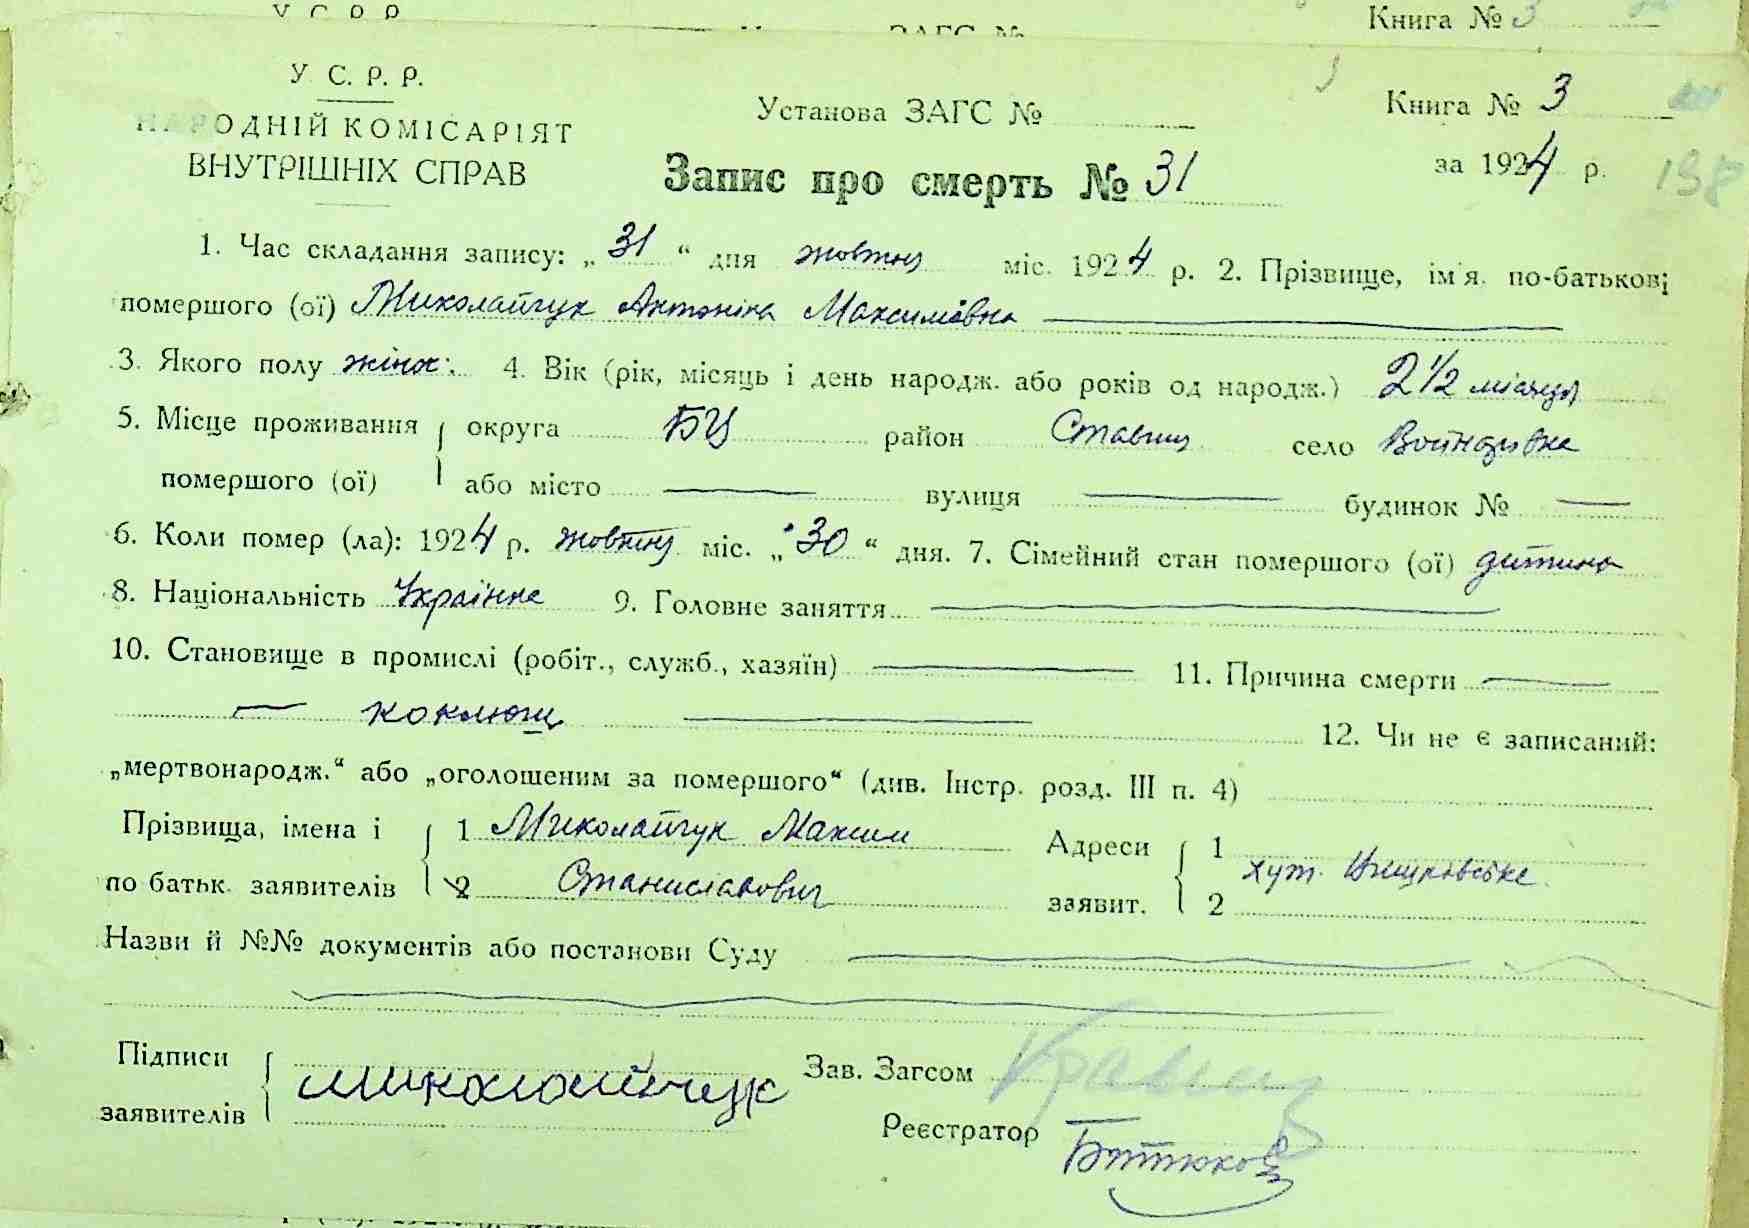 Книга № 3
У. С. Р. Р.
НАРОДНІЙ КОМІСАРІЯТ
ВНУТРІШНІХ СПРАВ
Установа ЗАГС №
Книга № 3
за 1924 р. 198
Запис про смерть № 31
1. Час складання запису: „31“ дня жовтня міс. 1924 р. 2. Прізвище, ім'я, по-батькові
помершого (ої) Миколайчук Антоніна Максимівна
3. Якого полу жіноч. 4. Вік (рік, місяць і день народж. або років од народж.) 2 1/2 місяця
5. Місце проживання округа БЦ район Ставищ село Войнарівка
помершого (ої) або місто — вулиця — будинок № —
6. Коли помер (ла): 1924 р. жовтня міс. „30“ дня. 7. Сімейний стан помершого (ої) дитина
8. Національність Українка 9. Головне заняття —
10. Становище в промислі (робіт., служб., хазяїн) — 11. Причина смерти —
— коклюш —
12. Чи не є записаний:
„мертвонародж.“ або „оголошеним за помершого“ (див. Інстр. розд. III п. 4)
Прізвища, імена і 1 Миколайчук Максим Адреси 1
по батьк. заявителів 2 Станиславович заявит. 2 хут.
Назви й №№ документів або постанови Суду —
Підписи
заявителів Миколайчук
Зав. Загсом
Реєстратор